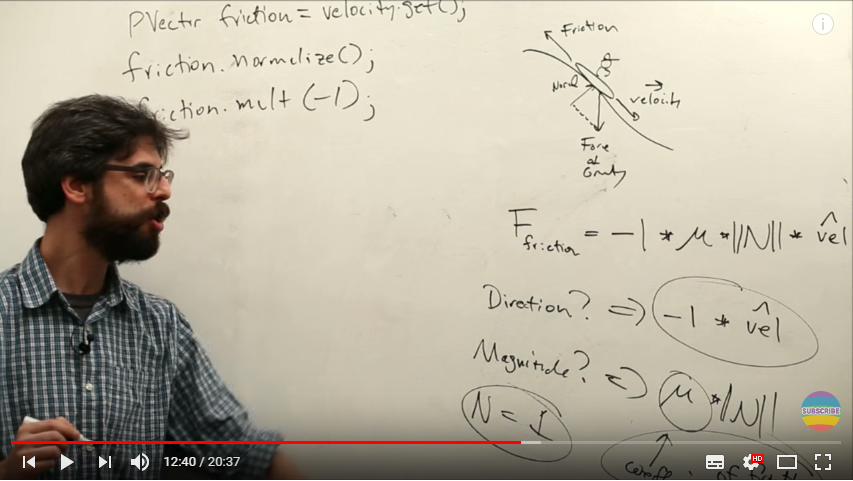 PVector friction = velocity.get();
friction.normalize();
friction.mult(-1);
Friction
Normal
velocity
Force
of
Gravity
F friction = -1 * μ * ||N|| * vel
Direction? => -1 * vel
Magnitude? => μ * ||N||
N = 1
SUBSCRIBE
12:40 / 20:37
HD